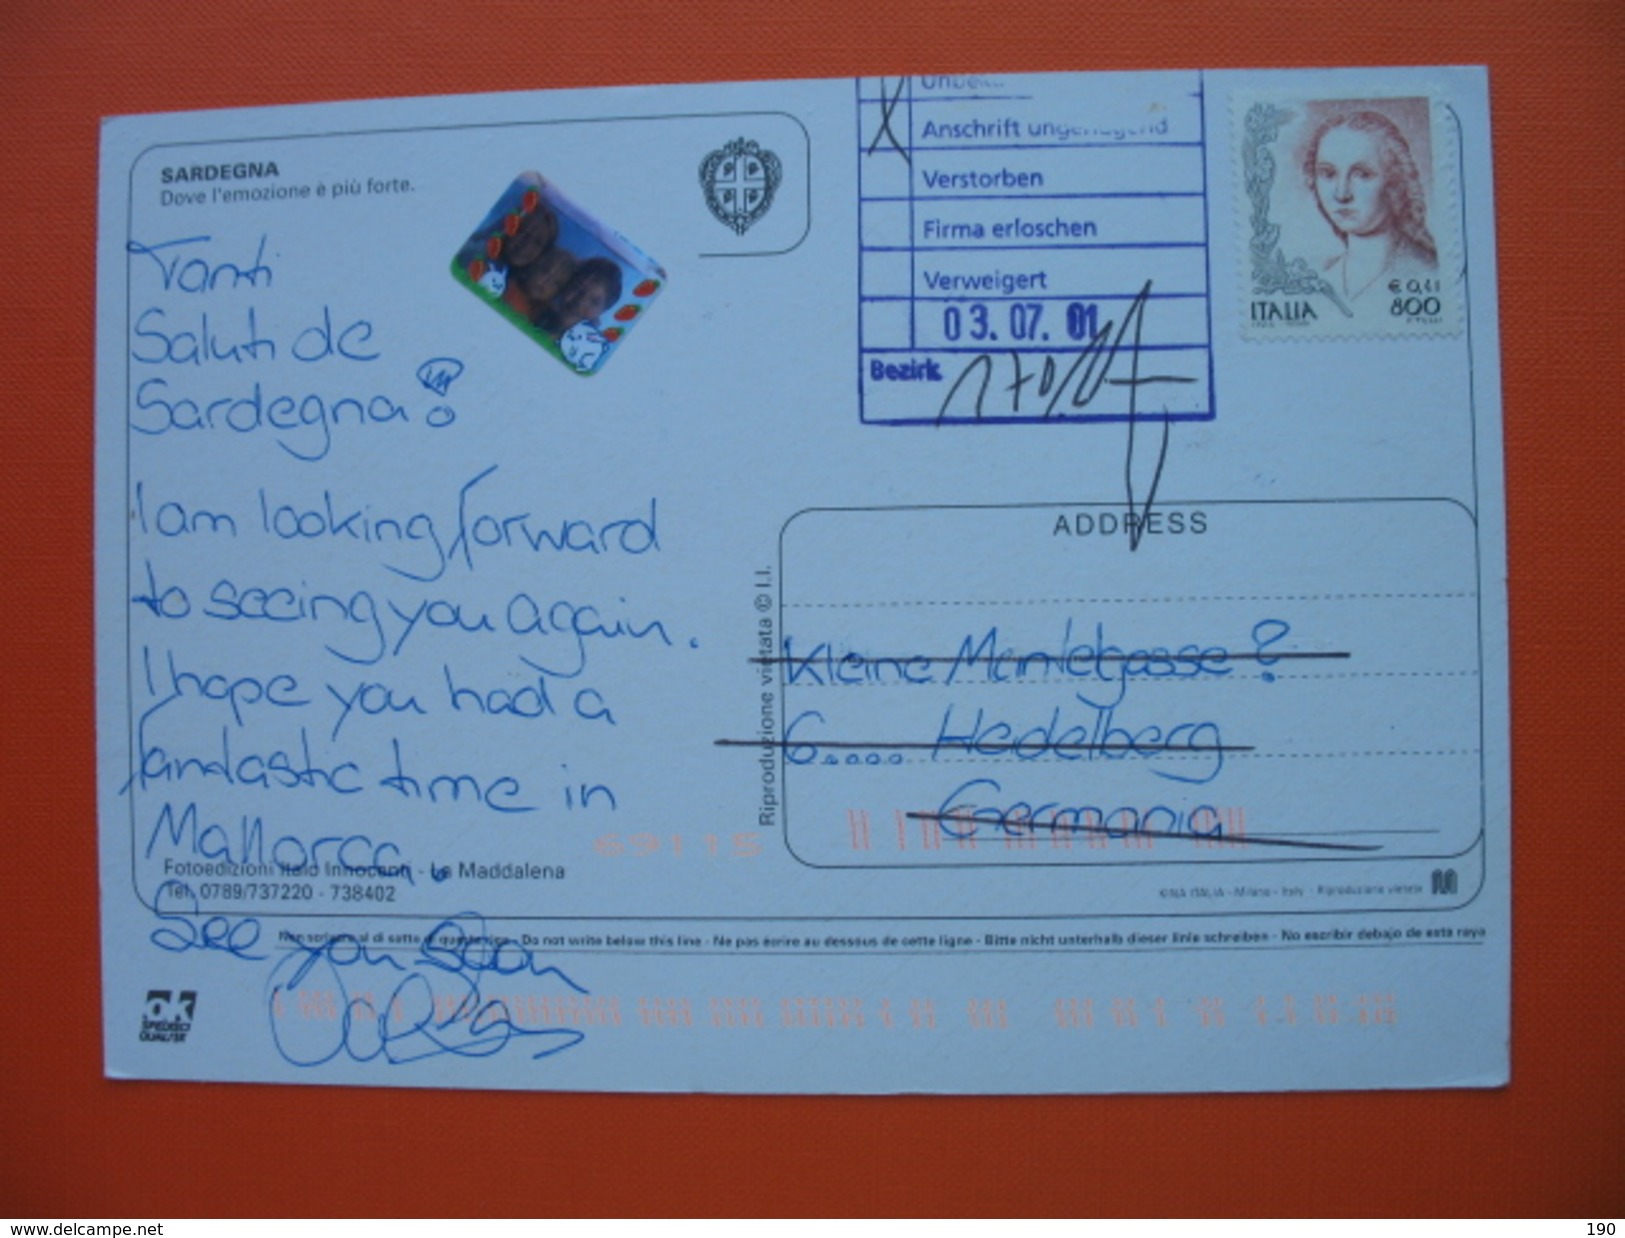 SARDEGNA
Dove l'emozione è più forte.
Tanti
Saluti de
Sardegna!
I am looking forward
to seeing you again.
I hope you had a
fantastic time in
Mallorca.
See you Soon
Fotoedizioni Italo Innocenti - La Maddalena
Tel. 0789/737220 - 738402
Anschrift ungenügend
Verstorben
Firma erloschen
Verweigert
03.07.01
Bezirk
ITALIA
€ 0,41
800
Riproduzione vietata © I.I.
ADDRESS
Kleine Mantelgasse ?
6..... Heidelberg
Germania
69115
KINA ITALIA - Milano - Italy - Riproduzione vietata
Non scrivere al di sotto di questa riga - Do not write below this line - Ne pas écrire au dessous de cette ligne - Bitte nicht unterhalb dieser linie schreiben - No escribir debajo de esta raya
ok
delcampe.net
190